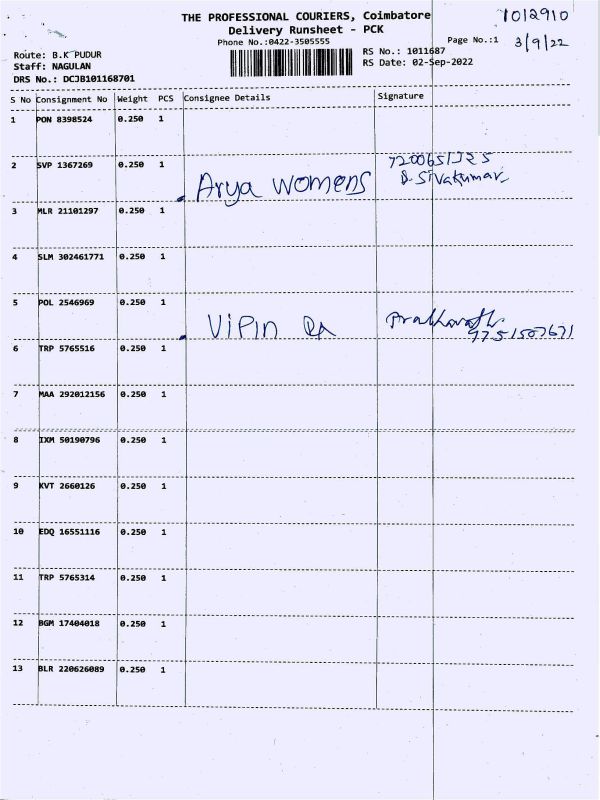 THE PROFESSIONAL COURIERS, Coimbatore
1012910
Delivery Runsheet - PCK
Phone No.:0422-3505555
Page No.:1
3/9/22
Route: B.K PUDUR
RS No.: 1011687
Staff: NAGULAN
RS Date: 02-Sep-2022
DRS No.: DCJB101168701
S No Consignment No Weight PCS Consignee Details Signature
1 PON 8398524 0.250 1
2 SVP 1367269 0.250 1
Arya womens
D. Sivakumar
3 MLR 21101297 0.250 1
4 SLM 302461771 0.250 1
5 POL 2546969 0.250 1
ViPIN
6 TRP 5765516 0.250 1
7 MAA 292012156 0.250 1
8 IXM 50190796 0.250 1
9 KVT 2660126 0.250 1
10 EDQ 16551116 0.250 1
11 TRP 5765314 0.250 1
12 BGM 17404018 0.250 1
13 BLR 220626089 0.250 1